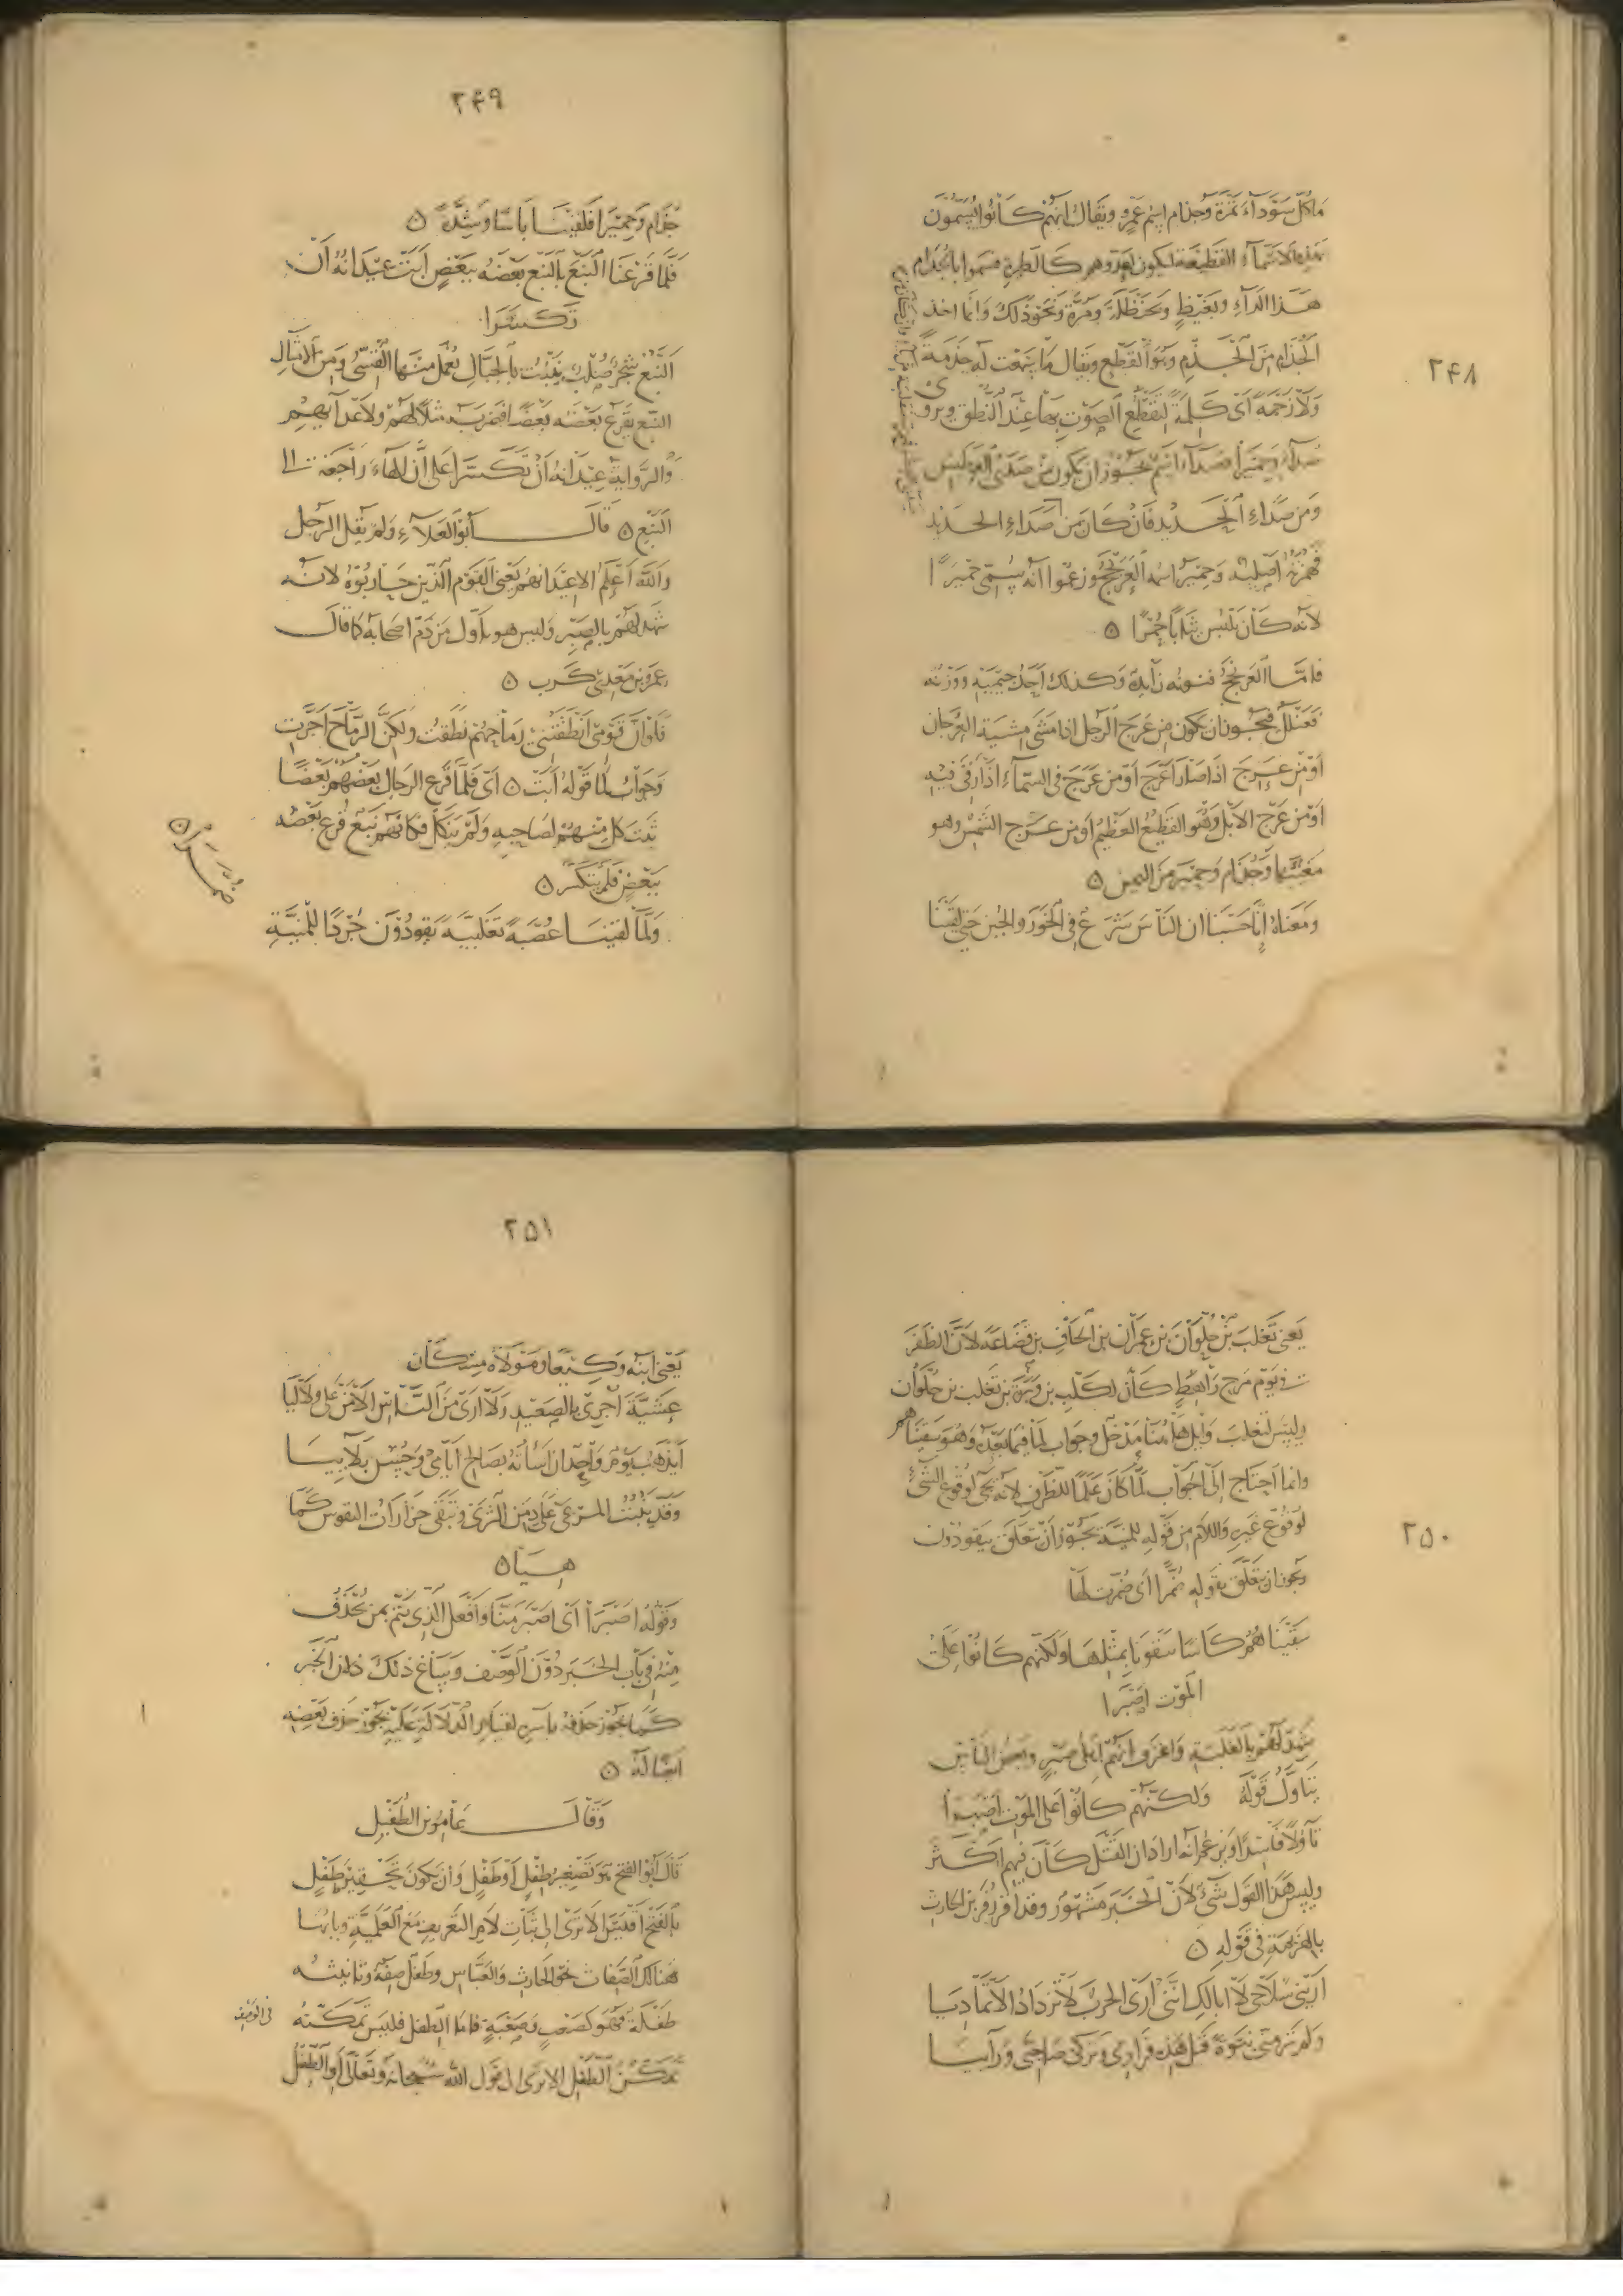 ٢٤٨
ما كل سوداء تمرة وجذام اسم عمرو ويقال انهم كانوا يسمون
بهذه الاسماء الفظيعة لتكون لعدوهم كالطيرة فسموا بالجذام
هذا الداء وبغيظ وحنظلة ومرة ونحو ذلك وانما اخذ
الجذام من الجذم وهو القطع ويقال ما سمعت له جذمة
ولا زجمة اى كلمة لتقطع الصوت بها عند النطق ويروى
صداء وحميرا فصداء اسم يجوز ان يكون من
ومن صداء الحديد فان كان من صداء الحديد
فهمزته اصلية وحمير اسمه العرنجج وزعموا انه سمى حميرا
لانه كان يلبس ثيابا حمرا ۞
فاما العرنجج فنونه زايدة وكذلك احد جيميه ووزنه
فعنلل فيجوز ان يكون من عرج الرجل اذا مشى مشية العرجان
او من عرج اذا صار اعرج او من عرج فى السماء اذا رقى فيه
او من عرج الابل وهو القطيع العظيم او من عرج الشمس وهو
مغيبها وجذام وحمير من اليمن ۞
ومعناه انا حسبنا ان الناس شرع فى الخور والجبن حتى لقينا
٢٤٩
جذام وحميرا فلقينا باسا وشدة ۞
فلما قرعنا النبع بالنبع بعضه ببعض ابت عيدانه ان
تكسرا
النبع شجر صلب ينبت بالجبال يعمل منها القسى ومن الامثال
النبع يقرع بعضه بعضا فضربه مثلا لهم ولاعدايهم
والرواية عيدانه ان تكسرا على ان الهاء راجعة الى
النبع ۞ قال ابو العلاء ولم يقل الرجل
والله اعلم الا عيدانهم يعنى القوم الذين حاربوه لانه
شهد لهم بالصبر وليس هو باول من ذم اصحابه كما قال
عمرو بن معدى كرب ۞
فلو ان قومى انطقتنى رماحهم نطقت ولكن الرماح اجرت
وجواب لما قوله ابت ۞ اى فلما قرع الرجال بعضهم بعضا
ثبت كل منهم لصاحبه ولم ينكل فكانهم نبع قرع بعضه
ببعض فلم ينكسر ۞
ولما لقينا عصبة تغلبية يقودون جردا للمنية
ضمرا ۞
٢٥٠
يعنى تغلب بن حلوان بن عمران بن الحاف بن قضاعة لان الظفر
فى يوم مرج راهط كان لكلب بن وبرة بن تغلب بن حلوان
وليس لتغلب وايل هاهنا مدخل وجواب لما فيما بعد وهو سقيناهم
وانما احتاج الى الجواب لما كان علما للظرف لانه يجئ لوقوع الشئ
لوقوع غيره واللام من قوله للمنية يجوز ان تتعلق بيقودون
ويجوز ان يتعلق بقوله ضمرا اى ضمرت لها
سقيناهم كاسا سقونا بمثلها ولكنهم كانوا على
الموت اصبرا
شهد لهم بالغلبة واعترف انهم اصبر وبعض الناس
يتاول قوله ولكنهم كانوا على الموت اصبرا
تاولا فاسدا ويزعم انه اراد ان القتل كان فيهم اكثر
وليس هذا القول شئ لان الخبر مشهور وقد اقر زفر بن الحارث
بالهزيمة فى قوله ۞
ارينى سلاحى لا ابا لك اننى ارى الحرب لا تزداد الا تماديا
ولم تر منى نبوة قبل هذه فرارى وتركى صاحبى ورآييا
٢٥١
يعنى ابنه وكيعا ومولاه مسكان
عشية اجرى بالصعيد ولا ارى من الناس الا من على ولا ليا
ايذهب يوم واحد ان اساته بصالح ايامى وحسن بلاييا
وقد ينبت المرعى على دمن الثرى وتبقى حزازات النفوس كما
هيا ۞
وقوله اصبرا اى اصبر منا وافعل الذى يتم بمن يحذف
منه فى باب الخبر دون الوصف وساغ ذلك لان الخبر
كما يجوز حذفه باسره لقيام الدلالة عليه يجوز حذف بعضه
ايضا له ۞
وقال عامر بن الطفيل
قال ابو الفتح هو تصغير طفل او طفل وان يكون تحقير طفل
بالفتح اقيس الا ترى الى ثبات لام التعريف مع العلمية وبابها
هنالك الصفات نحو الحارث والعباس وطفل صفة وتانيثه
طفلة فهو كصعب وصعبة فاما الطفل فليس تمكنه فى الوصف
تمكن الطفل الا ترى الى قول الله سبحانه وتعالى او الطفل